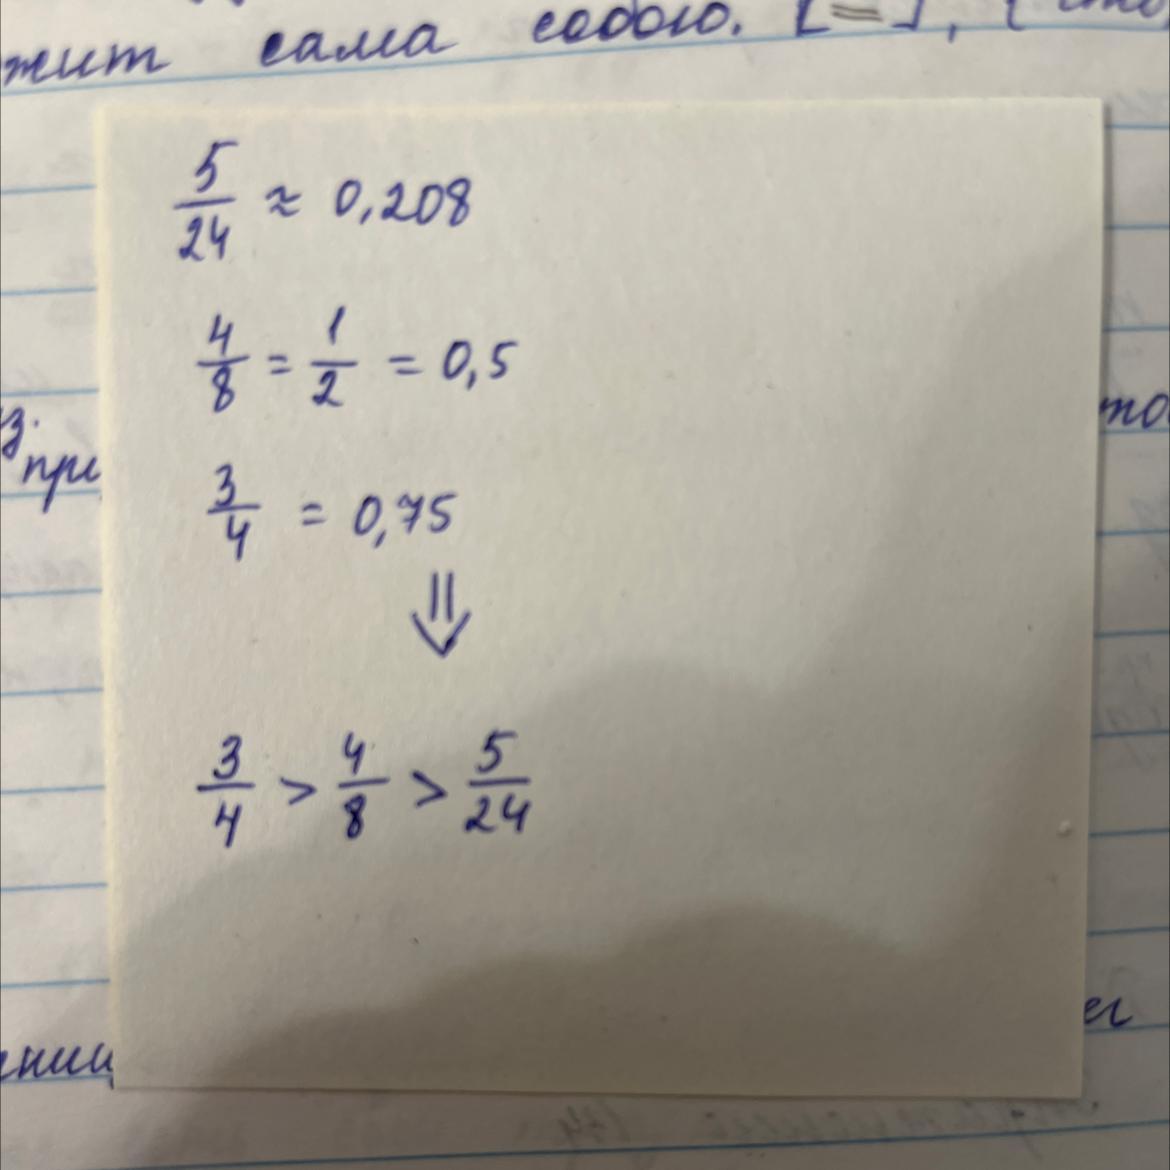 жит сама собою. [=],
5/24 ≈ 0,208
4/8 = 1/2 = 0,5
з.
при
3/4 = 0,75
⇓
3/4 > 4/8 > 5/24